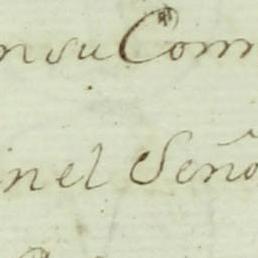 n su Com
in el Seño